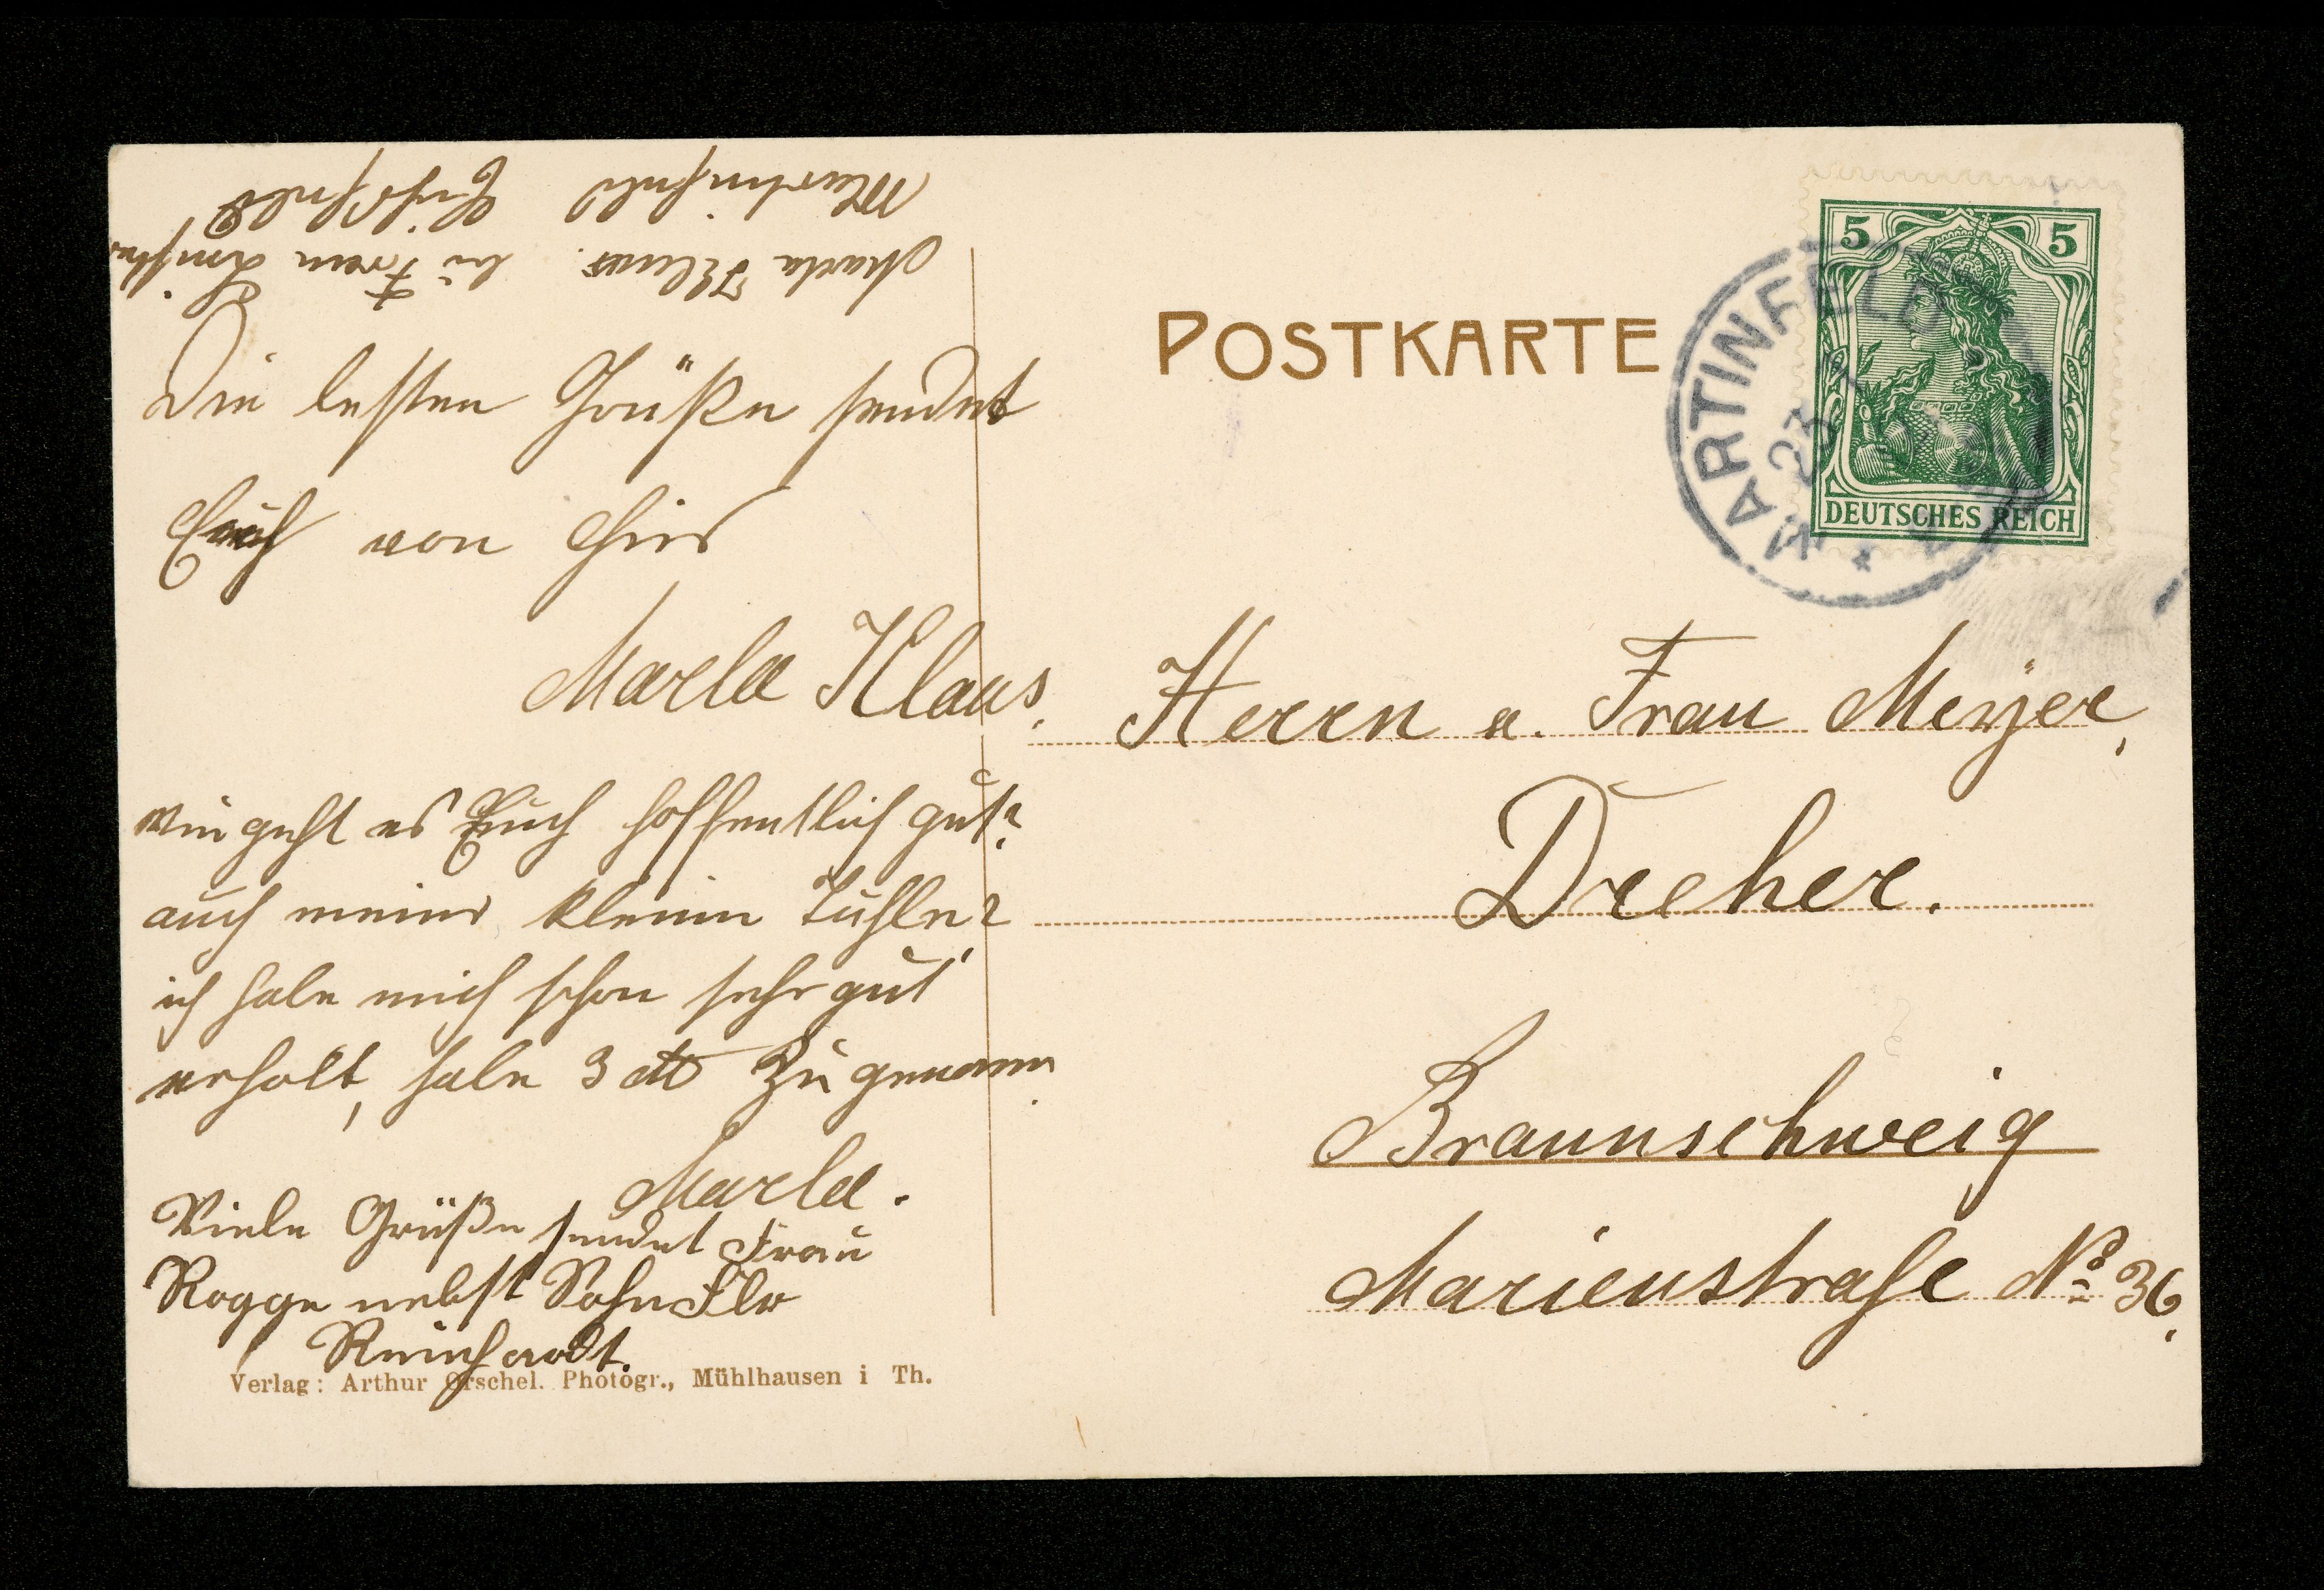 Martinfeld Eichsfeld
Marla Klaus. bei Frau
Die besten Grüße sendet
Euch von hier
Marla Klaus.
wie geht es Euch hoffentlich gut?
auch meiner kleinen
ich habe mich schon sehr gut
erholt, habe 3 ℔ zugenomm.
Marla.
Viele Grüße sendet Frau
Rogge nebst Sohn
Reinhardt.
Verlag: Arthur Orschel. Photogr., Mühlhausen i Th.
POSTKARTE
5 5
DEUTSCHES REICH
MARTINFELD
23
Herrn u. Frau Meyer,
Dreher.
Braunschweig
Marienstraße No 36.